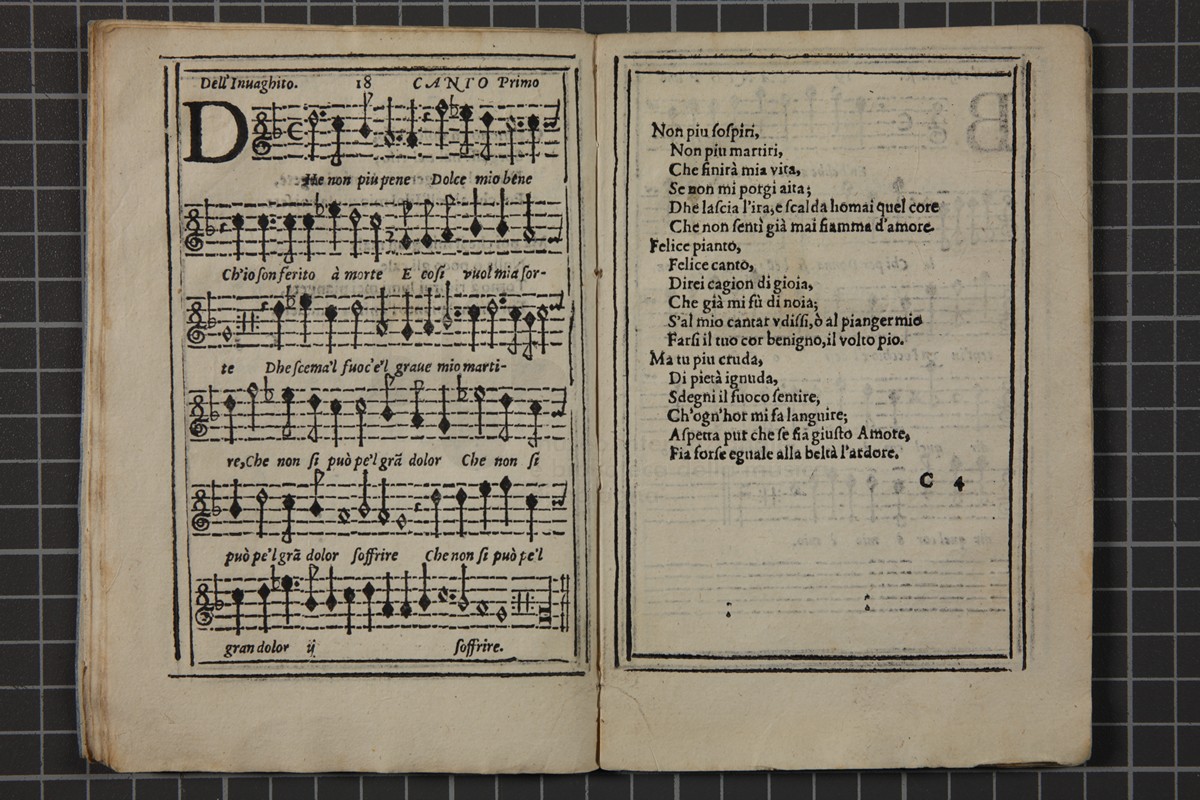 Dell'Inuaghito. 18 CANTO Primo
D
He non piu pene Dolce mio bene
Ch'io son ferito à morte E cosi vuol mia sor-
te Dhe scema'l fuoc'e'l graue mio marti-
re, Che non si può pe'l grã dolor Che non si
può pe'l grã dolor soffrire Che non si può pe'l
gran dolor ij soffrire.
Non piu sospiri,
Non piu martiri,
Che finirà mia vita,
Se non mi porgi aita;
Dhe lascia l'ira, e scalda homai quel core
Che non sentì già mai fiamma d'amore.
Felice pianto,
Felice canto,
Direi cagion di gioia,
Che già mi fù di noia;
S'al mio cantar vdissi, ò al pianger mio
Farsi il tuo cor benigno, il volto pio.
Ma tu piu cruda,
Di pietà ignuda,
Sdegni il fuoco sentire,
Ch'ogn'hor mi fa languire;
Aspetta pur che se fia giusto Amore,
Fia forse eguale alla beltà l'ardore.
C 4